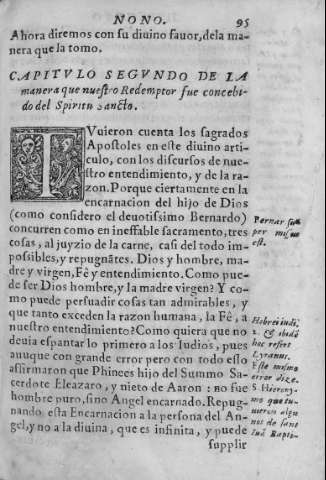 NONO. 95
Ahora diremos con su diuino fauor, dela ma
nera que la tomo.
CAPITVLO SEGVNDO DE LA
manera que nuestro Redemptor fue concebi-
do del Spiritu sancto.
TVuieron cuenta los sagrados
Apostoles en este diuino arti-
culo, con los discursos de nue-
stro entendimiento, y de la ra-
zon. Porque ciertamente en la
encarnacion del hijo de Dios
(como considero el deuotissimo Bernardo)
concurren como en ineffable sacramento, tres
cosas, al juyzio de la carne, casi del todo im-
possibles, y repugnātes. Dios y hombre, ma-
dre y virgen, Fê y entendimiento. Como pue-
de ser Dios hombre, y la madre virgen? Y co-
mo puede persuadir cosas tan admirables, y
que tanto exceden la razon humana, la Fê, a
nuestro entendimiento? Como quiera que no
deuia espantar lo primero a los Iudios, pues
auuque con grande error pero con todo esso
affirmaron que Phinees hijo del Summo Sa-
cerdote Eleazaro, y nieto de Aaron: no fue
hombre puro, sino Angel encarnado. Repug-
nando esta Encarnacion a la persona del An-
gel, y no a la diuina, que es infinita, y puede
supplir
Bernar. su-
per missus
est.
Hebrei indi.
hac refert
Lyranus.
Este mismo
error dize
S. Hierony-
mo que tu-
uieron algu
nos de sant
Iuā Bapti-